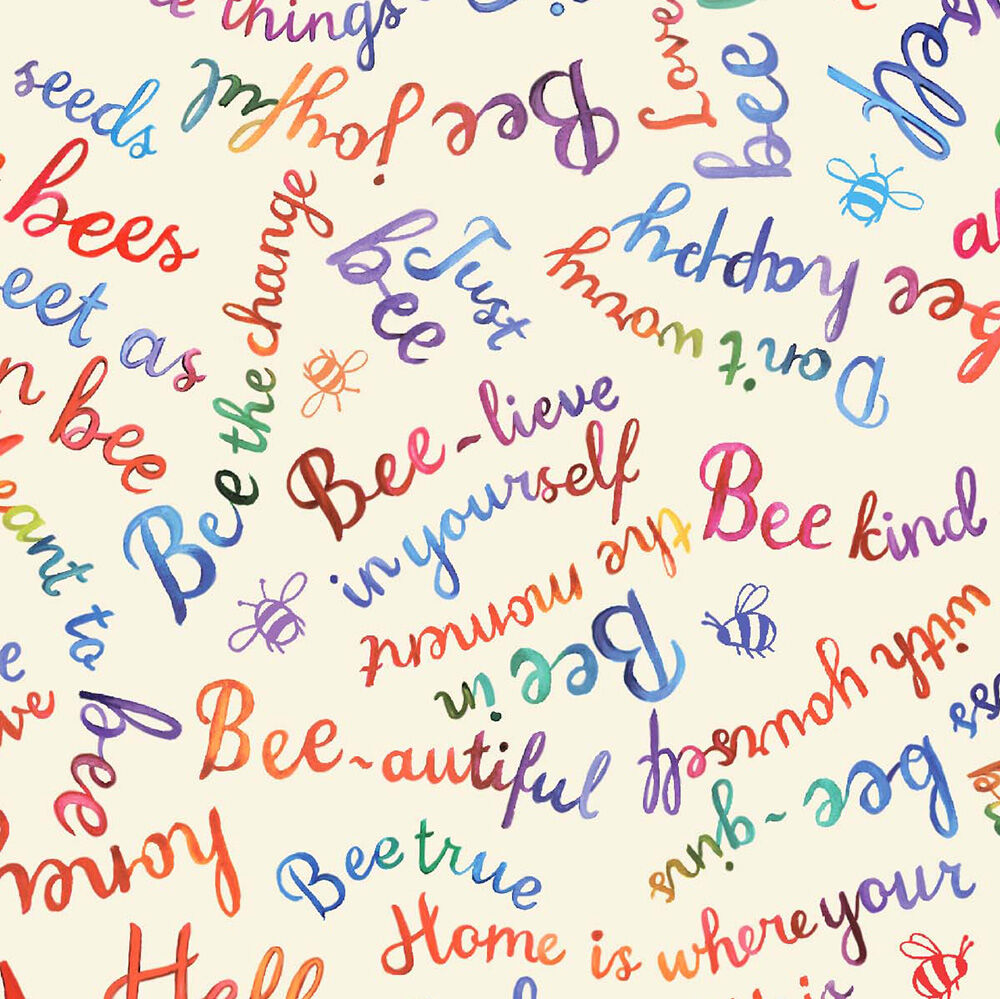 things
seeds
Bee joyful
Love
bee
self
bees
eet as
Bee the change
Just
bee
Don't worry
happy
bee
Bee
Bee-lieve
in yourself
Bee kind
Bee in
the moment
eant to
bee
Bee-autiful
bee-gins
with yourself
honey
Bee true
Home is where your
is
Hell